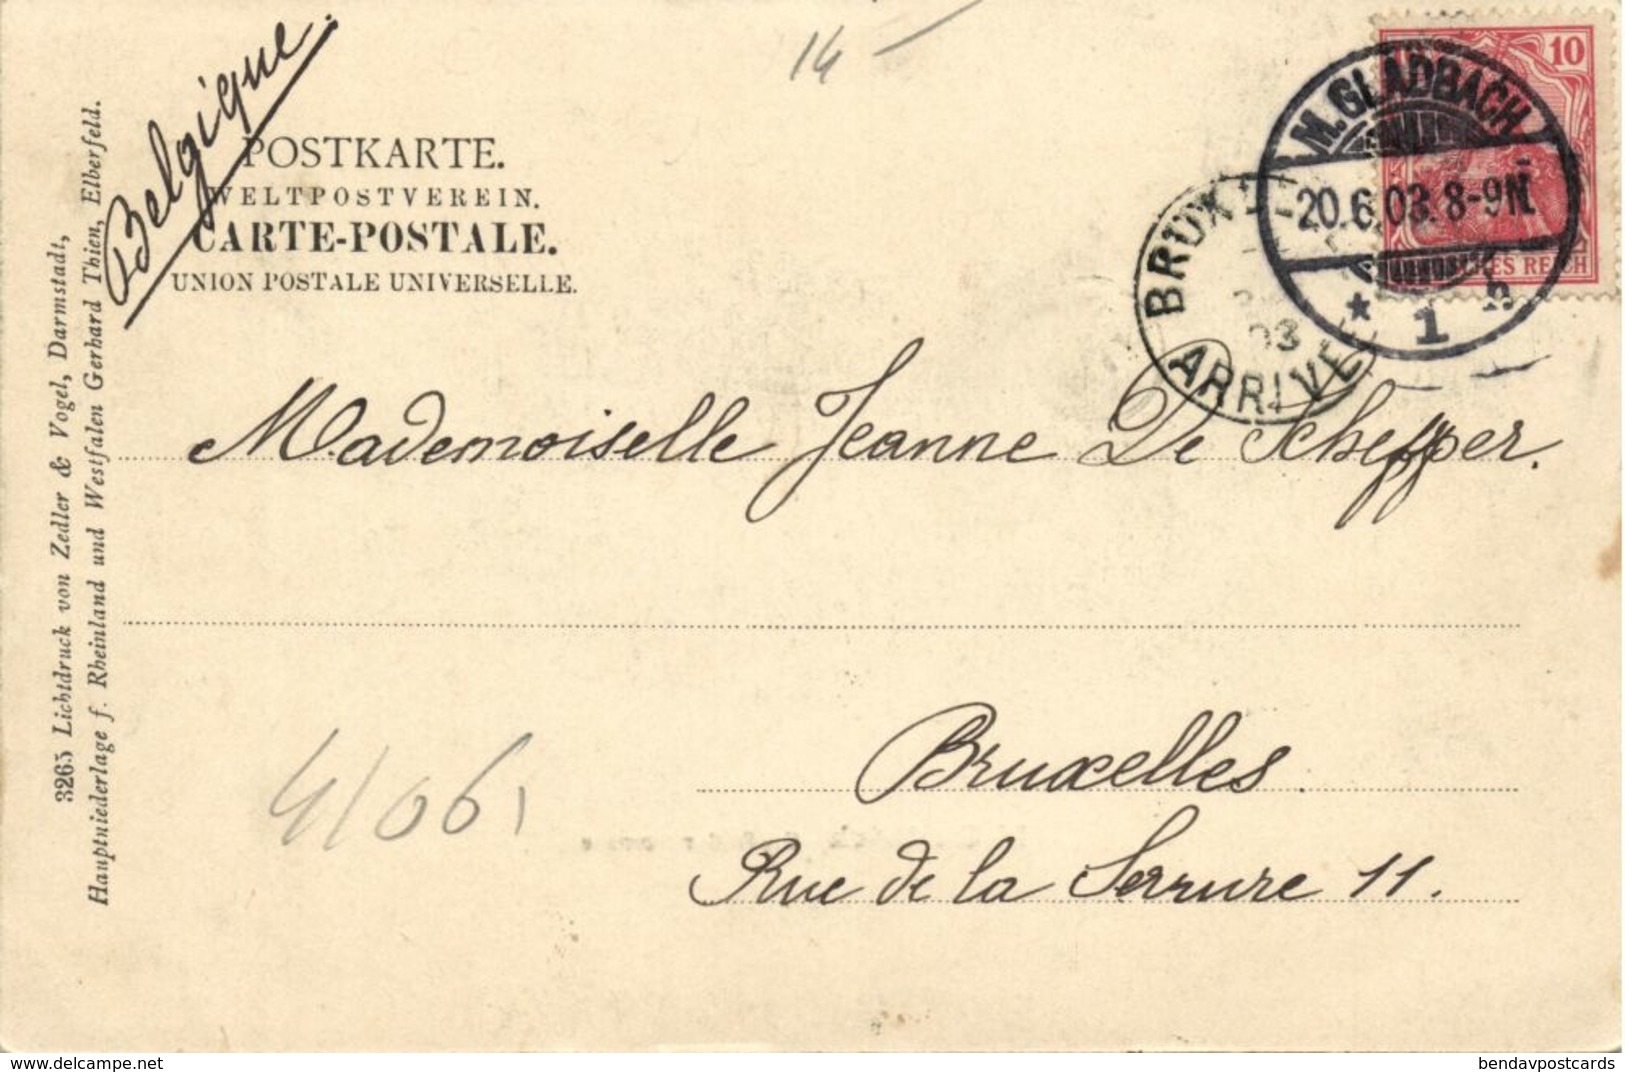 14 —
Belgique
POSTKARTE.
WELTPOSTVEREIN.
CARTE-POSTALE.
UNION POSTALE UNIVERSELLE.
3265 Lichtdruck von Zedler & Vogel, Darmstadt,
Hauptniederlage f. Rheinland und Westfalen Gerhard Thien, Elberfeld.
10
M.GLADBACH
20.6.03. 8-9N.
* 1
REICH
03
ARRIVEE
Mademoiselle Jeanne De Scheffer.
Bruxelles.
Rue de la Serrure 11.
4/06
www.delcampe.net
bendavpostcards